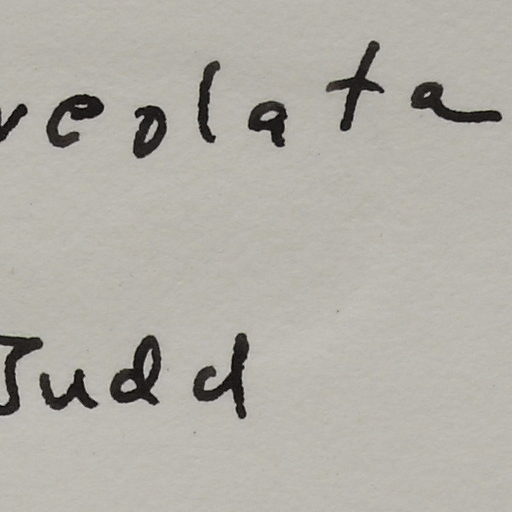 veolata
Judd